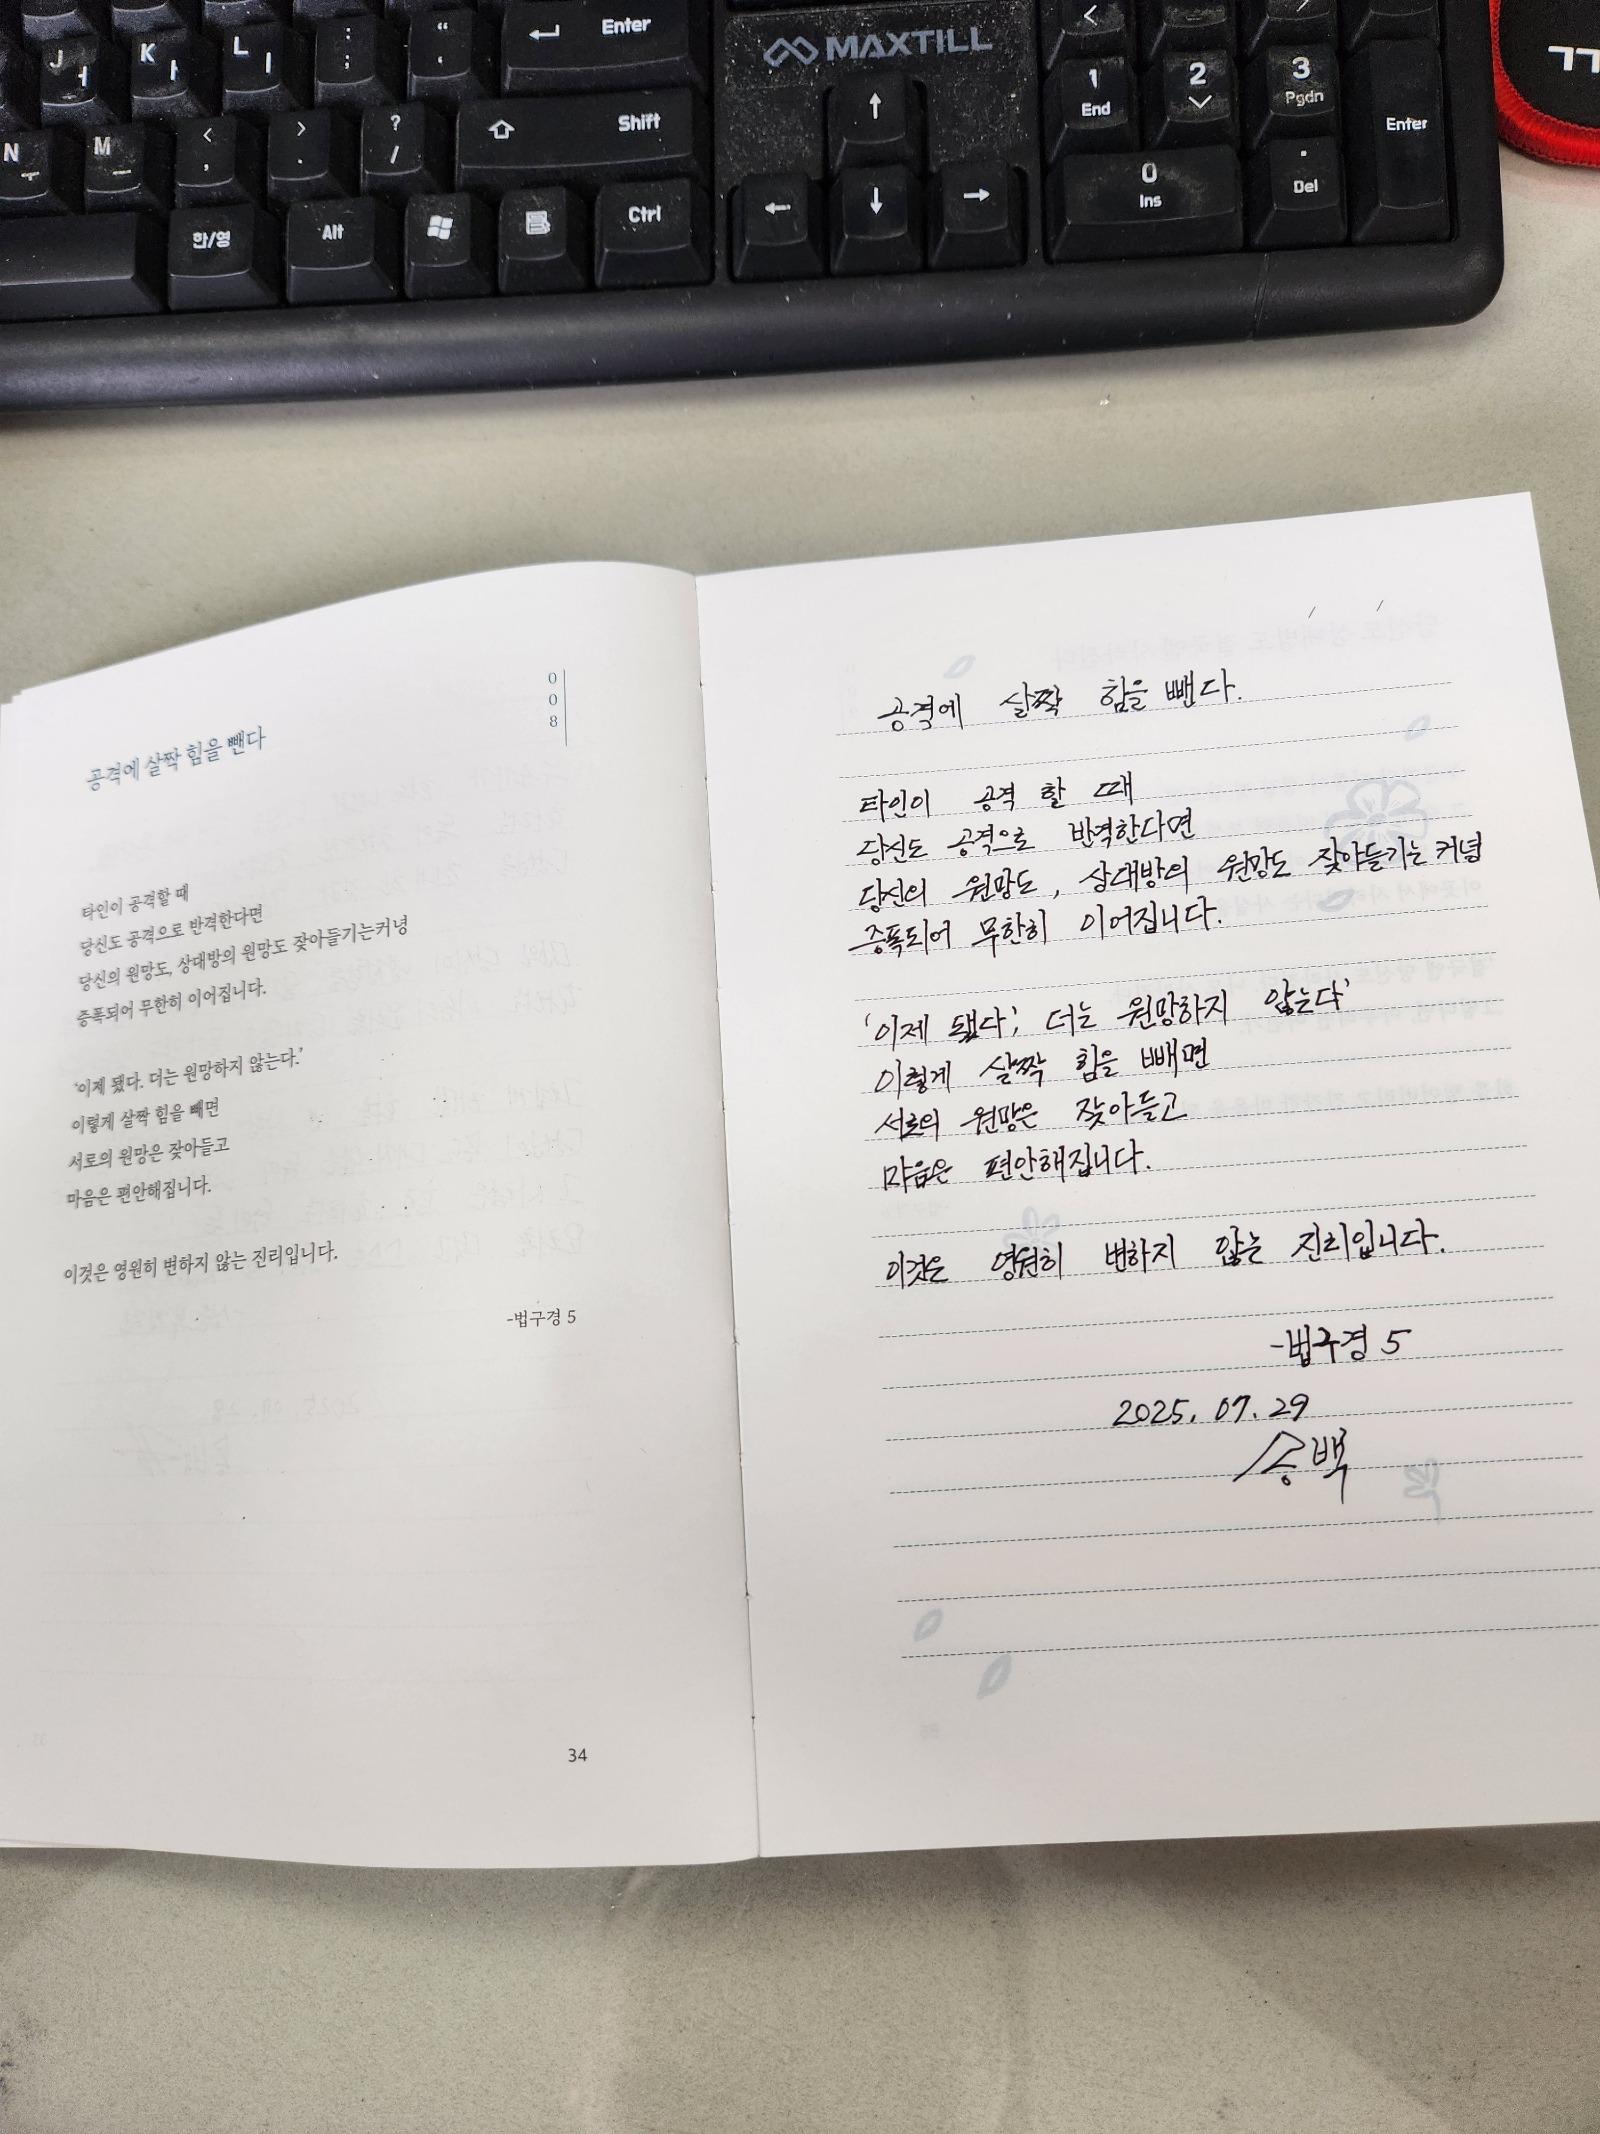 J ㅓ
K ㅏ
L ㅣ
: ;
“ ‘
Enter
MAXTILL
<
1 End
2
3 Pgdn
Enter
N ㅜ
M ㅡ
< ,
> .
? /
Shift
0 Ins
. Del
한/영
Alt
Ctrl
008
공격에 살짝 힘을 뺀다
타인이 공격할 때
당신도 공격으로 반격한다면
당신의 원망도, 상대방의 원망도 잦아들기는커녕
증폭되어 무한히 이어집니다.
‘이제 됐다. 더는 원망하지 않는다.’
이렇게 살짝 힘을 빼면
서로의 원망은 잦아들고
마음은 편안해집니다.
이것은 영원히 변하지 않는 진리입니다.
-법구경 5
34
공격에 살짝 힘을 뺀다.
타인이 공격 할 때
당신도 공격으로 반격한다면
당신의 원망도, 상대방의 원망도 잦아들기는 커녕
증폭되어 무한히 이어집니다.
‘이제 됐다; 더는 원망하지 않는다’
이렇게 살짝 힘을 빼면
서로의 원망은 잦아들고
마음은 편안해집니다.
이것은 영원히 변하지 않는 진리입니다.
-법구경 5
2025. 07. 29
송백